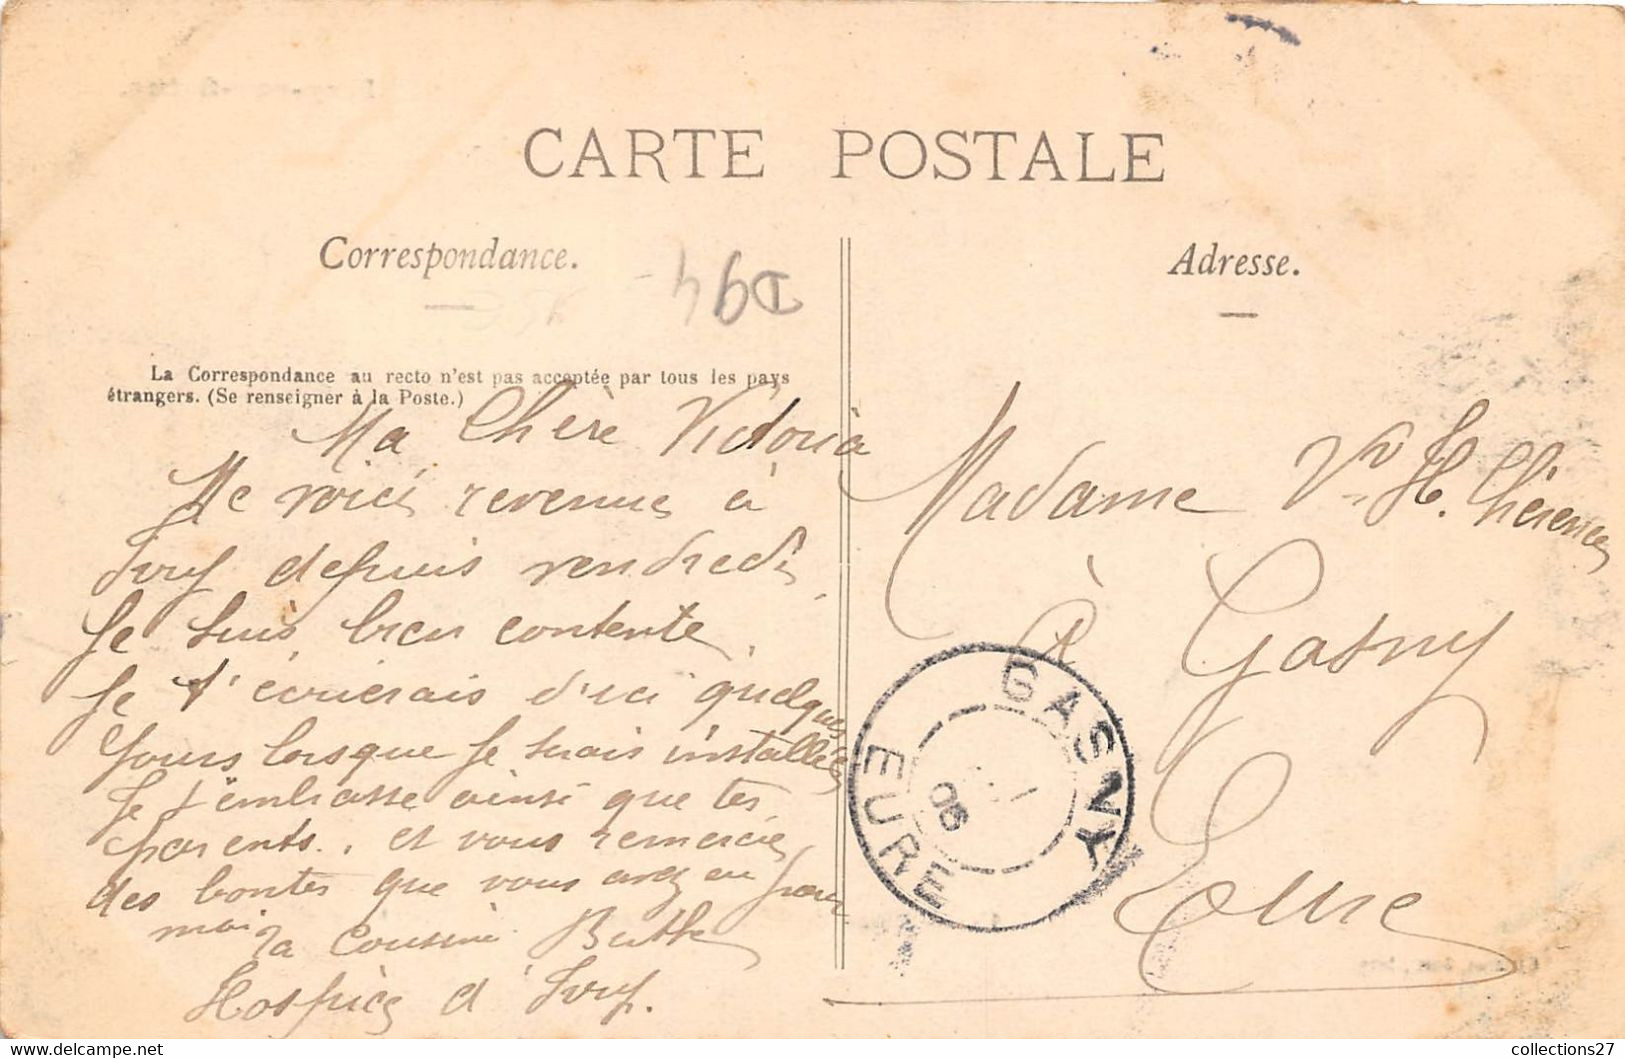 CARTE POSTALE
Correspondance.
D94-
La Correspondance au recto n'est pas acceptée par tous les pays
étrangers. (Se renseigner à la Poste.)
Ma Chère Victoria
Me voici revenue à
Ivry depuis vendredi,
Je suis bien contente,
Je t'écrierais d'ici quelques
Jours lorsque Je serais installée
Je t'embrasse ainsi que tes
parents, et vous remercie
des bontés que vous avez eu pour
moi
ta Cousine Berthe
Hospice d'Ivry.
Adresse.
Madame Vve H. Chérence
à Gasny
Eure
GASNY
06
EURE
collections27